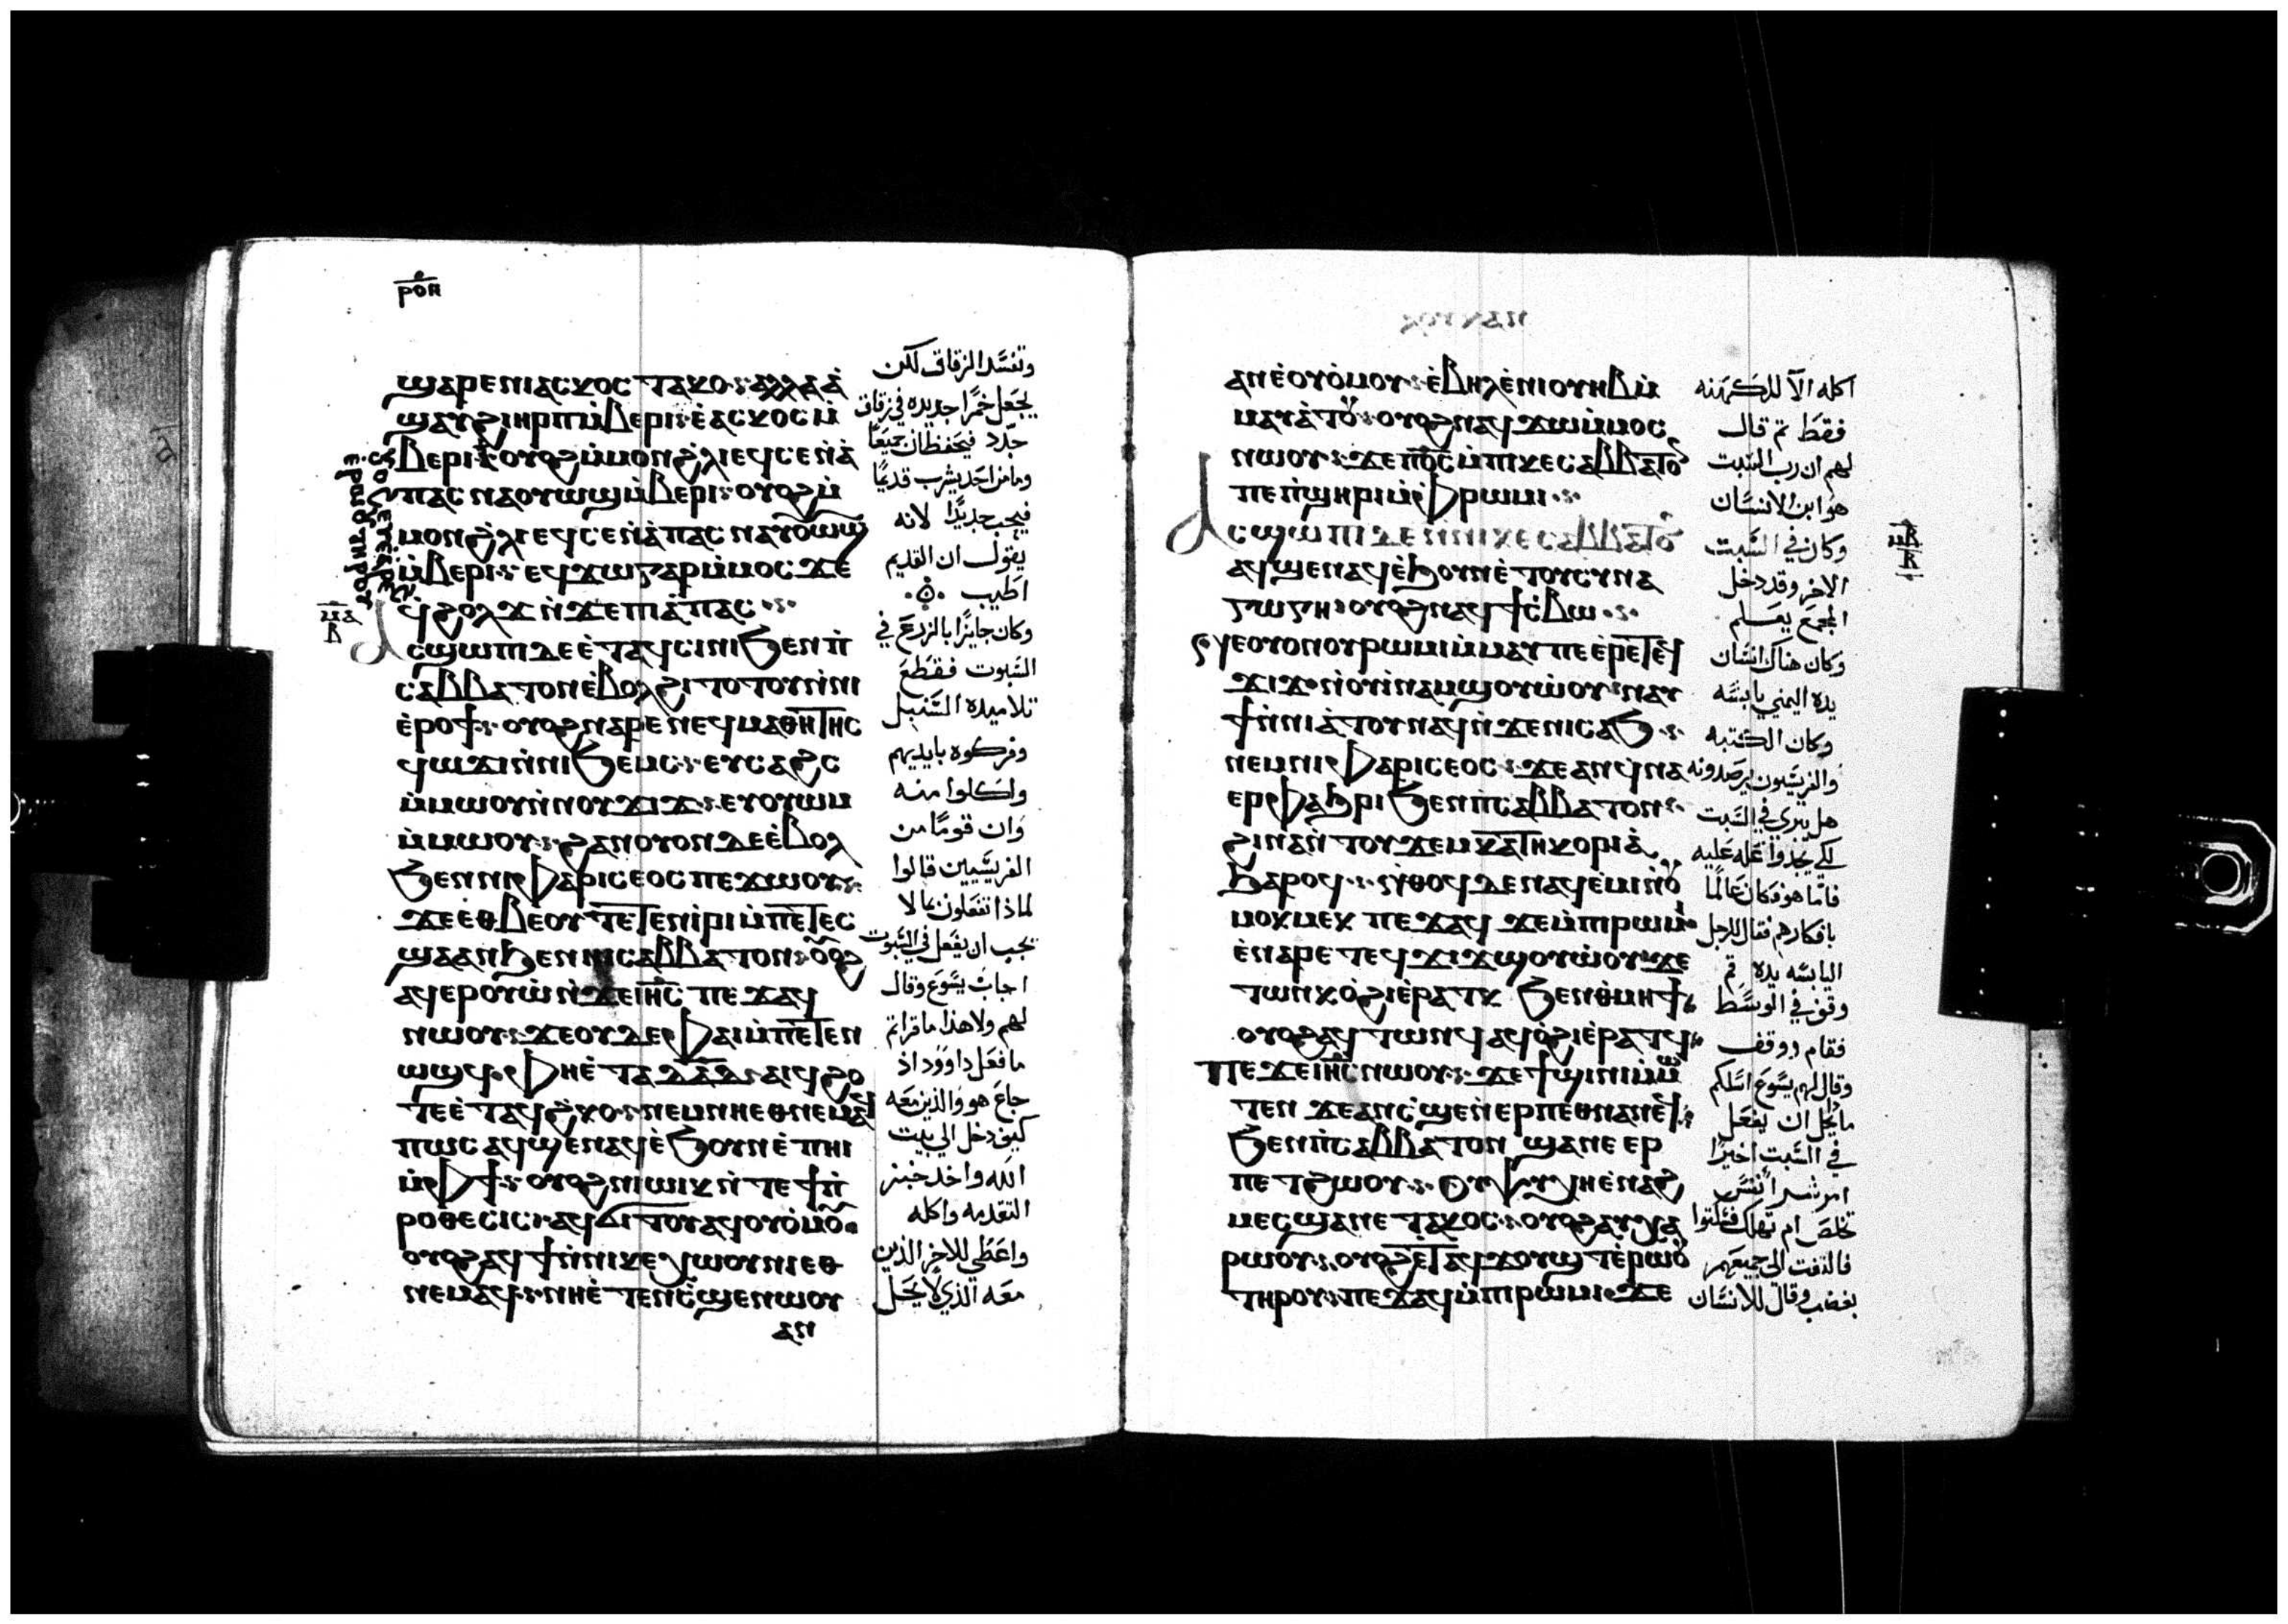 ⲣⲟⲏ
ϣⲁⲣⲉⲛⲓⲁⲥⲕⲟⲥ ⲧⲁⲕⲟ ⲁⲗⲗⲁ
ϣⲁⲩϩⲓⲏⲣⲡ ⲙ̀ⲃⲉⲣⲓ ⲉ̀ⲁⲥⲕⲟⲥ ⲙ̀
ⲃⲉⲣⲓ ⲟⲩⲟϩ ⲙ̀ⲙⲟⲛ ϩ̀ⲗⲓ ⲉϥⲥⲉ ⲛ̀ⲁ̀
ⲡⲁⲥ ⲛⲁⲟⲩⲱϣ ⲙ̀ⲃⲉⲣⲓ ⲟⲩⲟϩ ⲙ̀
ⲙⲟⲛ ϩ̀ⲗⲓ ⲉϥⲥⲉ ⲛ̀ⲁ̀ⲡⲁⲥ ⲛⲁⲟⲩⲱϣ
ⲙ̀ⲃⲉⲣⲓ ⲉϥϫⲱ ⲅⲁⲣ ⲙ̀ⲙⲟⲥ ϫⲉ
ϥ̀ϩⲟⲗϫ ⲛ̀ϫⲉ ⲡⲓⲁ̀ⲡⲁⲥ
ⲁⲥϣⲱⲡⲓ ⲇⲉ ⲉ̀ⲧⲁϥⲥⲓⲛⲓ ϧⲉⲛ ⲡ̀
ⲥⲁⲃⲃⲁⲧⲟⲛ ⲉ̀ⲃⲟⲗ ϩⲓⲧⲟⲧⲟⲩ ⲛ̀ⲛⲓ
ⲉ̀ⲣⲟϯ ⲟⲩⲟϩ ⲛⲁⲣⲉ ⲛⲉϥⲙⲁⲑⲏⲧⲏⲥ
ϥⲱϫⲓ ⲛ̀ⲛⲓϧⲉⲙⲥ ⲉⲩⲥⲁϩⲥ
ⲙ̀ⲙⲱⲟⲩ ⲛ̀ⲛⲟⲩϫⲓϫ ⲉⲩⲟⲩⲱⲙ
ⲙ̀ⲙⲱⲟⲩ ϩⲁⲛⲟⲩⲟⲛ ⲇⲉ ⲉ̀ⲃⲟⲗ
ϧⲉⲛ ⲛⲓⲫⲁⲣⲓⲥⲉⲟⲥ ⲡⲉϫⲱⲟⲩ
ϫⲉ ⲉⲑⲃⲉⲟⲩ ⲧⲉⲧⲉⲛⲓ̀ⲣⲓ ⲙ̀ⲡⲉⲧⲉⲥ
ϣⲁ ⲁⲛ ϧⲉⲛ ⲛⲓⲥⲁⲃⲃⲁⲧⲟⲛ ⲟⲩⲟϩ
ⲁϥⲉⲣⲟⲩⲱ̀ ⲛ̀ϫⲉ ⲓⲏⲥ ⲡⲉϫⲁϥ
ⲛⲱⲟⲩ ϫⲉ ⲟⲩⲇⲉ ⲫⲁⲓ ⲙ̀ⲡⲉⲧⲉⲛ
ⲱϣϥ ⲫⲏ ⲉ̀ⲧⲁ ⲇⲁⲇ ⲁⲓϥ ϩⲟ
ⲧⲉ ⲉ̀ⲧⲁϥϩ̀ⲕⲟ ⲛⲉⲙ ⲛⲏ ⲉⲑⲛⲉⲙⲁϥ
ⲡⲱⲥ ⲁϥϣⲉⲛⲁϥ ⲉ̀ϧⲟⲩⲛ ⲉ̀ⲡⲏⲓ
ⲙ̀ⲫϯ ⲟⲩⲟϩ ⲛⲓⲱⲓⲕ ⲛ̀ⲧⲉ ϯⲡ̀
ⲣⲟⲑⲉⲥⲓⲥ ⲁϥϭⲓⲧⲟⲩ ⲁϥⲟⲩⲟ̀ⲙⲟⲩ
ⲟⲩⲟϩ ⲁϥϯ ⲛ̀ⲛⲓⲕⲉⲭⲱⲟⲩⲛⲓ ⲉⲑ
ⲛⲉⲙⲁϥ ⲛⲏ ⲉ̀ⲧⲉⲛⲥ̀ϣⲉ ⲛⲱⲟⲩ
ⲁⲛ
وتفسد الزقاق لكن
يجعل خمرًا جديده في زقاق
جدد فيحفظان جميعًا
وما من احد يشرب قديمًا
فيحب جديدًا لانه
يقول ان القديم
اطيب
وكان جايزًا بالزرع في
السبوت فقطع
تلاميده السنبل
وفركوه بايديهم
واكلوا منه
وان قومًا من
الفريسيين قالوا
لماذا تفعلون ما لا
يجب ان يفعل في السبوت
اجاب يسوع وقال
لهم ولا هذا ما قراتم
ما فعل داوود اذ
جاع هو والذين معه
كيف دخل الي بيت
الله واخد خبز
التقدمه واكله
واعطي للاخر الذين
معه الذي لا يحل
ⲁⲛ ⲉ̀ⲟⲩⲟ̀ⲙⲟⲩ ⲉ̀ⲃⲏⲗ ⲉ̀ⲛⲓⲟⲩⲏⲃ ⲙ̀
ⲙⲁⲩⲁⲧⲟⲩ ⲟⲩⲟϩ ⲛⲁϥϫⲱ ⲙ̀ⲙⲟⲥ
ⲛⲱⲟⲩ ϫⲉ ⲡⲟ̅ⲥ̅ ⲙ̀ⲡⲓⲕⲉⲥⲁⲃⲃⲁⲧⲟⲛ
ⲡⲉ ⲡ̀ϣⲏⲣⲓ ⲙ̀ⲫⲣⲱⲙⲓ
ⲁⲥϣⲱⲡⲓ ⲇⲉ ⲛ̀ⲛⲓⲕⲉⲥⲁⲃⲃⲁⲧⲟⲛ
ⲁϥϣⲉⲛⲁϥ ⲉ̀ϧⲟⲩⲛ ⲉ̀ⲧⲟⲩⲥⲩⲛⲁ
ⲅⲱⲅⲏ ⲟⲩⲟϩ ⲛⲁϥϯⲥ̀ⲃⲱ
ⲛⲉ ⲟⲩⲟⲛ ⲟⲩⲣⲱⲙⲓ ⲙ̀ⲙⲁⲩ ⲡⲉ ⲉ̀ⲣⲉ ⲧⲉϥ
ϫⲓϫ ⲛ̀ⲟⲩⲓ̀ⲛⲁⲙ ϣⲟⲩⲱ̀ⲟⲩ ⲛⲁⲩ
ϯⲛ̀ⲛⲓⲁ̀ⲧⲟⲩ ⲛⲁϥ ⲛ̀ϫⲉ ⲛⲓⲥⲁϧ
ⲛⲉⲙ ⲛⲓⲫⲁⲣⲓⲥⲉⲟⲥ ϫⲉ ⲁⲛ ϥ̀ⲛⲁ
ⲉⲣⲫⲁϧⲣⲓ ϧⲉⲛ ⲡ̀ⲥⲁⲃⲃⲁⲧⲟⲛ
ϩⲓⲛⲁ ⲛ̀ⲧⲟⲩϫⲉⲙ ⲕⲁⲧⲏⲕⲟⲣⲓⲁ
ϧⲁⲣⲟϥ ⲛ̀ⲑⲟϥ ⲇⲉ ⲛⲁϥⲉ̀ⲙⲓ ⲛ̀ⲛⲟⲩ
ⲙⲟⲕⲙⲉⲕ ⲡⲉϫⲁϥ ϫⲉ ⲙ̀ⲡⲓⲣⲱⲙⲓ
ⲉ̀ⲛⲁⲣⲉ ⲧⲉϥϫⲓϫ ϣⲟⲩⲱ̀ⲟⲩ ϫⲉ
ⲧⲱⲛⲕ ⲟ̀ϩⲓ ⲉ̀ⲣⲁⲧⲕ ϧⲉⲛ ⲑ̀ⲙⲏϯ
ⲟⲩⲟϩ ⲁϥⲧⲱⲛϥ ⲁϥⲟ̀ϩⲓ ⲉ̀ⲣⲁⲧϥ
ⲡⲉϫⲉ ⲓⲏⲥ ⲛⲱⲟⲩ ϫⲉ ϯϣⲓⲛⲓ ⲙ̀ⲙⲱ
ⲧⲉⲛ ϫⲉ ⲁⲛ ⲥ̀ϣⲉ ⲛ̀ⲉⲣⲡⲉⲑⲛⲁⲛⲉϥ
ϧⲉⲛ ⲡ̀ⲥⲁⲃⲃⲁⲧⲟⲛ ϣⲁⲛ ⲉⲉⲣ
ⲡⲉⲧϩⲱⲟⲩ ⲟⲩⲯⲩⲭⲏ ⲉ̀ⲛⲁϩ
ⲙⲉⲥ ϣⲁⲛ ⲉⲧⲁⲕⲟⲥ ⲟⲩⲟϩ ⲁⲩⲭⲁ
ⲣⲱⲟⲩ ⲟⲩⲟϩ ⲉⲧⲁϥϫⲟⲩϣⲧ ⲉ̀ⲣⲱⲟⲩ
ⲧⲏⲣⲟⲩ ⲡⲉϫⲁϥ ⲙ̀ⲡⲓⲣⲱⲙⲓ ϫⲉ
اكله الا للكهنه
فقط تم قال
لهم ان رب السبت
هو ابن الانسان
وكان في السبت
الاخر وقد دخل
المجمع يعلم
وكان هناك انسان
يده اليمني يابسه
وكان الكتبه
والفريسيون يرصدونه
هل يبري في السبت
لكي يجدوا عله عليه
فاما هو فكان عالمًا
بافكارهم فقال للرجل
اليابسه يده قم
وقف في الوسط
فقام ووقف
وقال لهم يسوع اسلكم
ما يحل ان يفعل
في السبت اخيرًا
ام شرا نفس
تخلص ام تهلك فسكتوا
فالتفت الي جميعهم
بغضب وقال للانسان